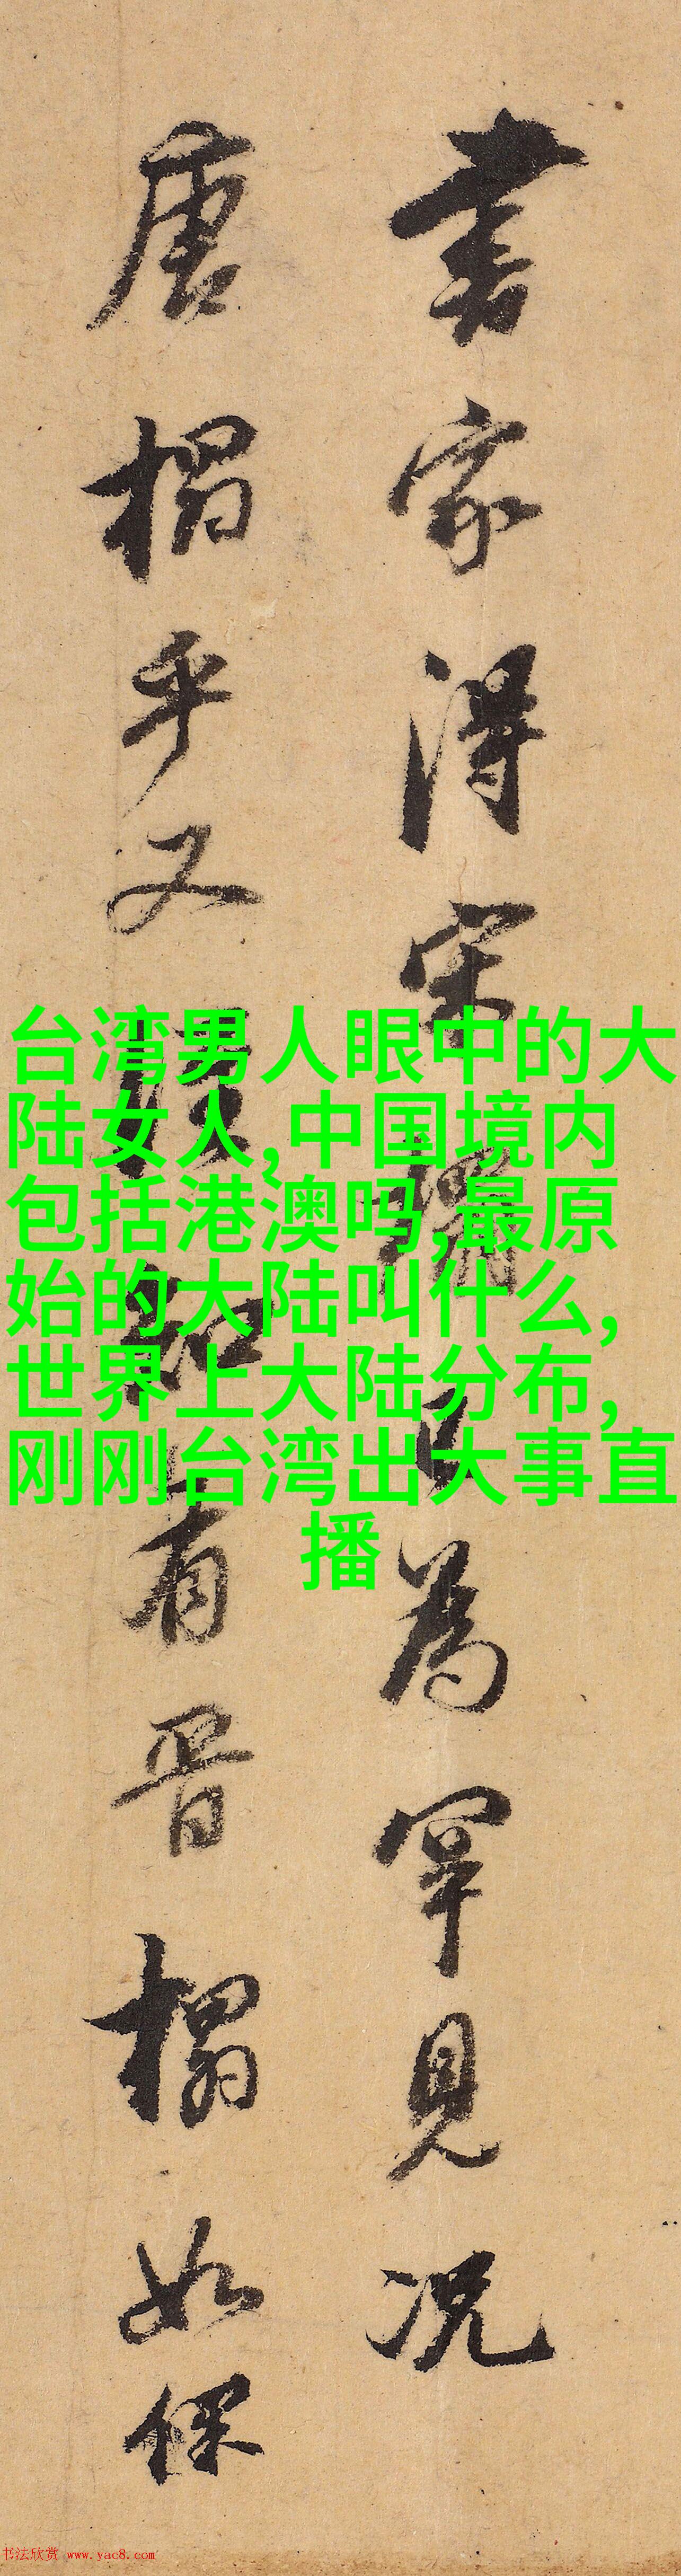 書家得宋搨已為罕見況
唐搨乎又
有晋搨如保
台湾男人眼中的大
陆女人,中国境内
包括港澳吗,最原
始的大陆叫什么,
世界上大陆分布,
刚刚台湾出大事直
播
书法欣赏 www.yac8.com